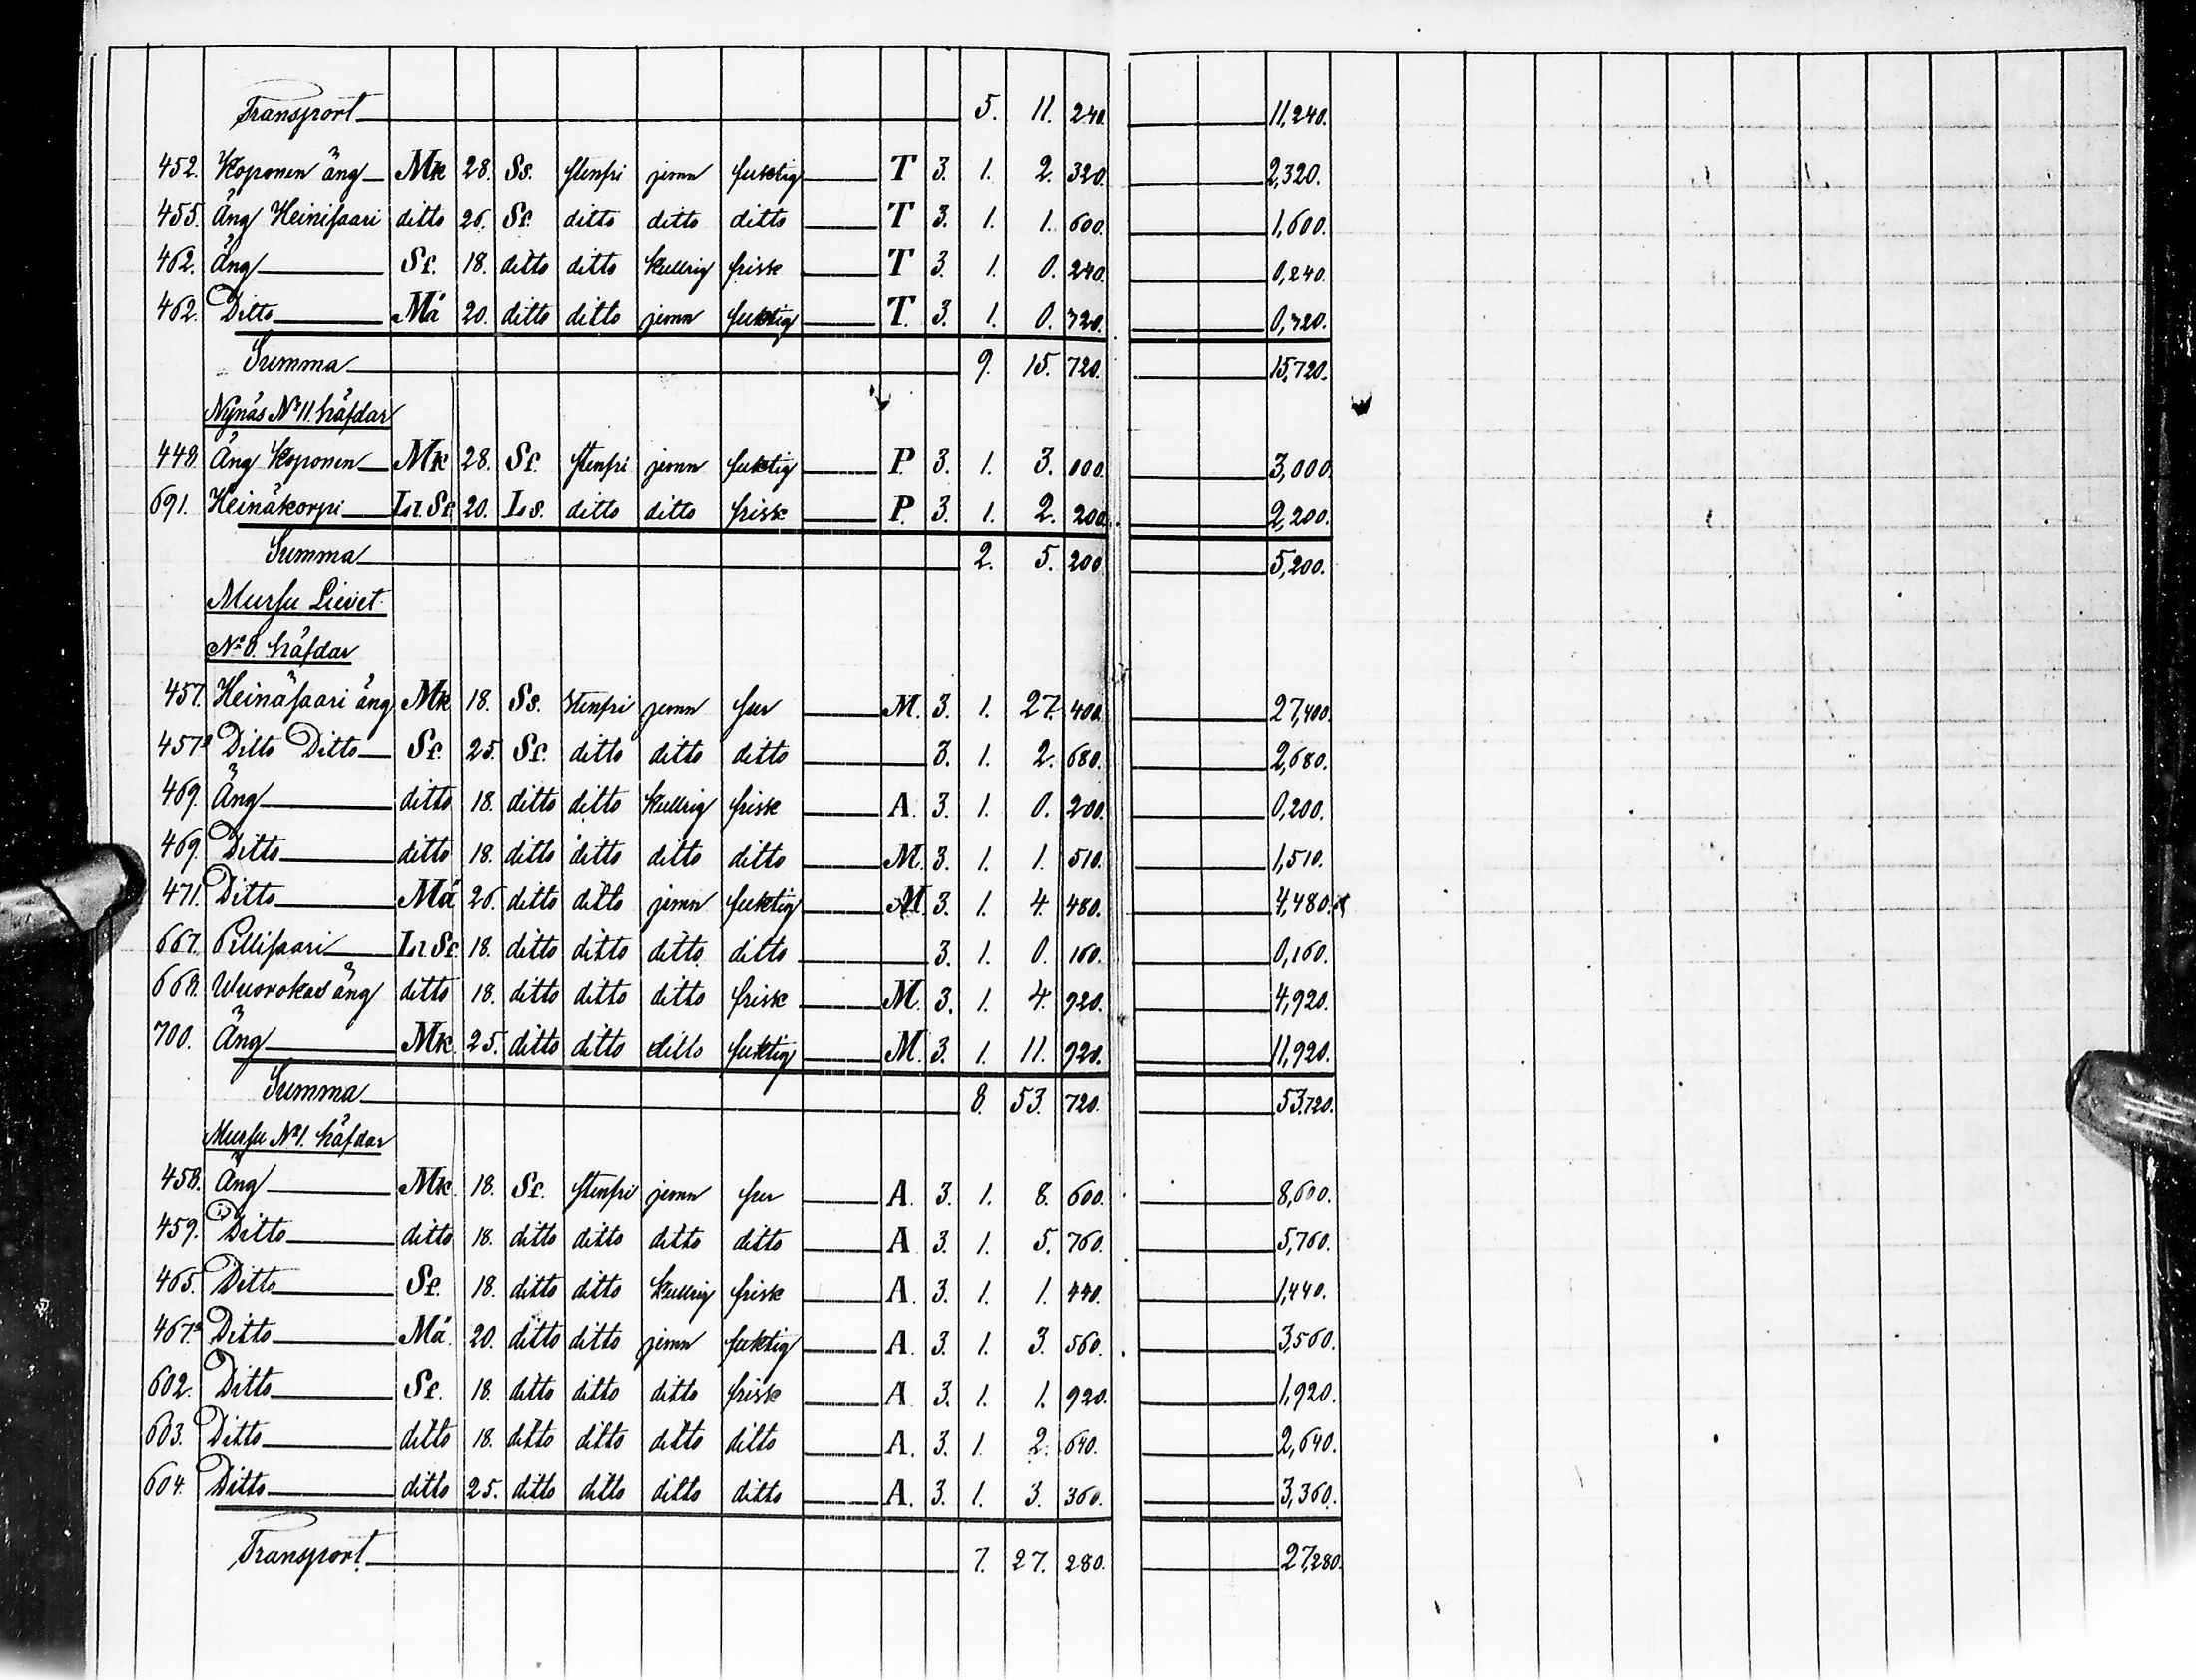 Transport 5. 11. 240. 11,240.
452. Koponen äng Mk 28. Ss. stenfri jemn fuktig T 3. 1. 2. 320. 2,320.
455. Äng Heinisaari ditto 26. Sr. ditto ditto ditto T 3. 1. 1. 600. 1,600.
462. Äng Sr. 18. ditto ditto kullrig frisk T 3. 1. 0. 240. 0,240.
462. Ditto Mä 20. ditto ditto jemn fuktig T. 3. 1. 0. 320. 0,320.
Summa 9. 15. 720. 15,720.
Nynäs No 11. häfdar
448. Äng Koponen Mk 28. Sr. stenfri jemn fuktig P. 3. 1. 3. 000. 3,000.
691. Heinäkorpi Lr.Sr. 20. Ls. ditto ditto frisk P. 3. 1. 2. 200. 2,200.
Summa 2. 5. 200. 5,200.
Mursu Lievet
No 8. häfdar
457. Heinäsaari äng Mk 18. Ss. Stenfri jemn sur M. 3. 1. 27. 400. 27,400.
457a Ditto Ditto Sr. 25. Sr. ditto ditto ditto 3. 1. 2. 680. 2,680.
469. Äng ditto 18. ditto ditto kullrig frisk A. 3. 1. 0. 200. 0,200.
469. Ditto ditto 18. ditto ditto ditto ditto M. 3. 1. 1. 510. 1,510.
471. Ditto Mä 26. ditto ditto jemn fuktig M. 3. 1. 4. 480. 4,480.
667. Pillisaari Lr.Sr. 18. ditto ditto ditto ditto 3. 1. 0. 160. 0,160.
668. Wuorokas äng ditto 18. ditto ditto ditto frisk M. 3. 1. 4. 920. 4,920.
700. Äng Mk. 25. ditto ditto ditto fuktig M. 3. 1. 11. 920. 11,920.
Summa 8. 53. 720. 53,720.
Mursu No 1. häfdar
458. Äng Mk. 18. Sr. stenfri jemn sur A. 3. 1. 8. 600. 8,600.
459. Ditto ditto 18. ditto ditto ditto ditto A 3. 1. 5. 760. 5,760.
465. Ditto Sr. 18. ditto ditto kullrig frisk A. 3. 1. 1. 440. 1,440.
467a Ditto Mä. 20. ditto ditto jemn fuktig A. 3. 1. 3. 560. 3,560.
602. Ditto Sr. 18. ditto ditto ditto frisk A 3. 1. 1. 920. 1,920.
603. Ditto ditto 18. ditto ditto ditto ditto A. 3. 1. 2. 640. 2,640.
604. Ditto ditto 25. ditto ditto ditto ditto A. 3. 1. 3. 360. 3,360.
Transport 7. 27. 280. 27,280.